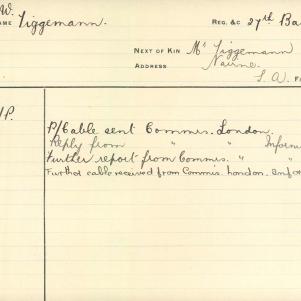 W.
NAME Tiggemann. REG. &C 27th Ba
NEXT OF KIN Mr Tiggemann
ADDRESS Nairne.
S. A.
P/Cable sent Commis. London.
Reply from " " Inform
Further report from Commis. " "
Further cable received from Commis. London. Info